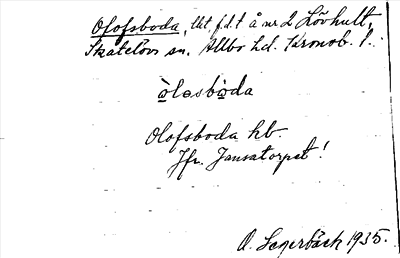 Olofsboda, lht, f.d. t å nr 2 Lövhult,
Skatelövs sn. Allbo hd. Kronob. l.
òlesbòda
Olofsboda hb
Jfr. Jansatorpet!
O. Segerbäck 1935.